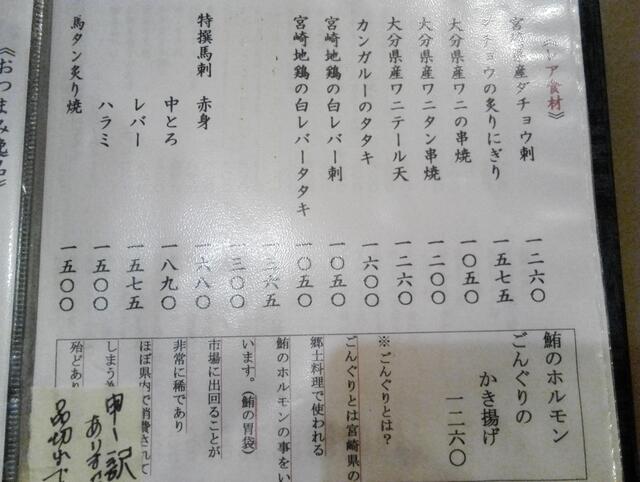 レア食材》
宮崎県産ダチョウ刺 一二六〇
ダチョウの炙りにぎり 一五七五
大分県産ワニの串焼 一〇五〇
大分県産ワニタン串焼 一二〇〇
大分県産ワニテール天 一二六〇
カンガルーのタタキ 一六〇〇
宮崎地鶏の白レバー刺 一〇五〇
宮崎地鶏の白レバータタキ 一〇五〇
一二六五
一三〇〇
特撰馬刺 赤身 一六八〇
中とろ 一八九〇
レバー 一五七五
ハラミ 一五〇〇
馬タン炙り焼 一五〇〇
鮪のホルモン
ごんぐりの
かき揚げ
一二六〇
※ごんぐりとは?
ごんぐりとは宮崎県の
郷土料理で使われる
鮪のホルモンの事をい
います。(鮪の胃袋)
市場に出回ることが
非常に稀であり
ほぼ県内で消費されて
しまう
殆どあり
申し訳
あります
品切れで
《おつまみ逸品》